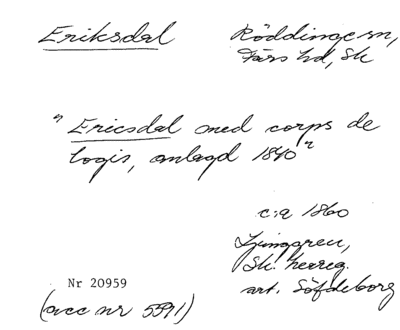 Eriksdal
Röddinge sn,
Färs hd, Sk
"Ericsdal med corps de
logis, anlagd 1840"
c:a 1860
Ljunggren,
Sk. herreg.
art. Söfdeborg
Nr 20959
(acc nr 5591)